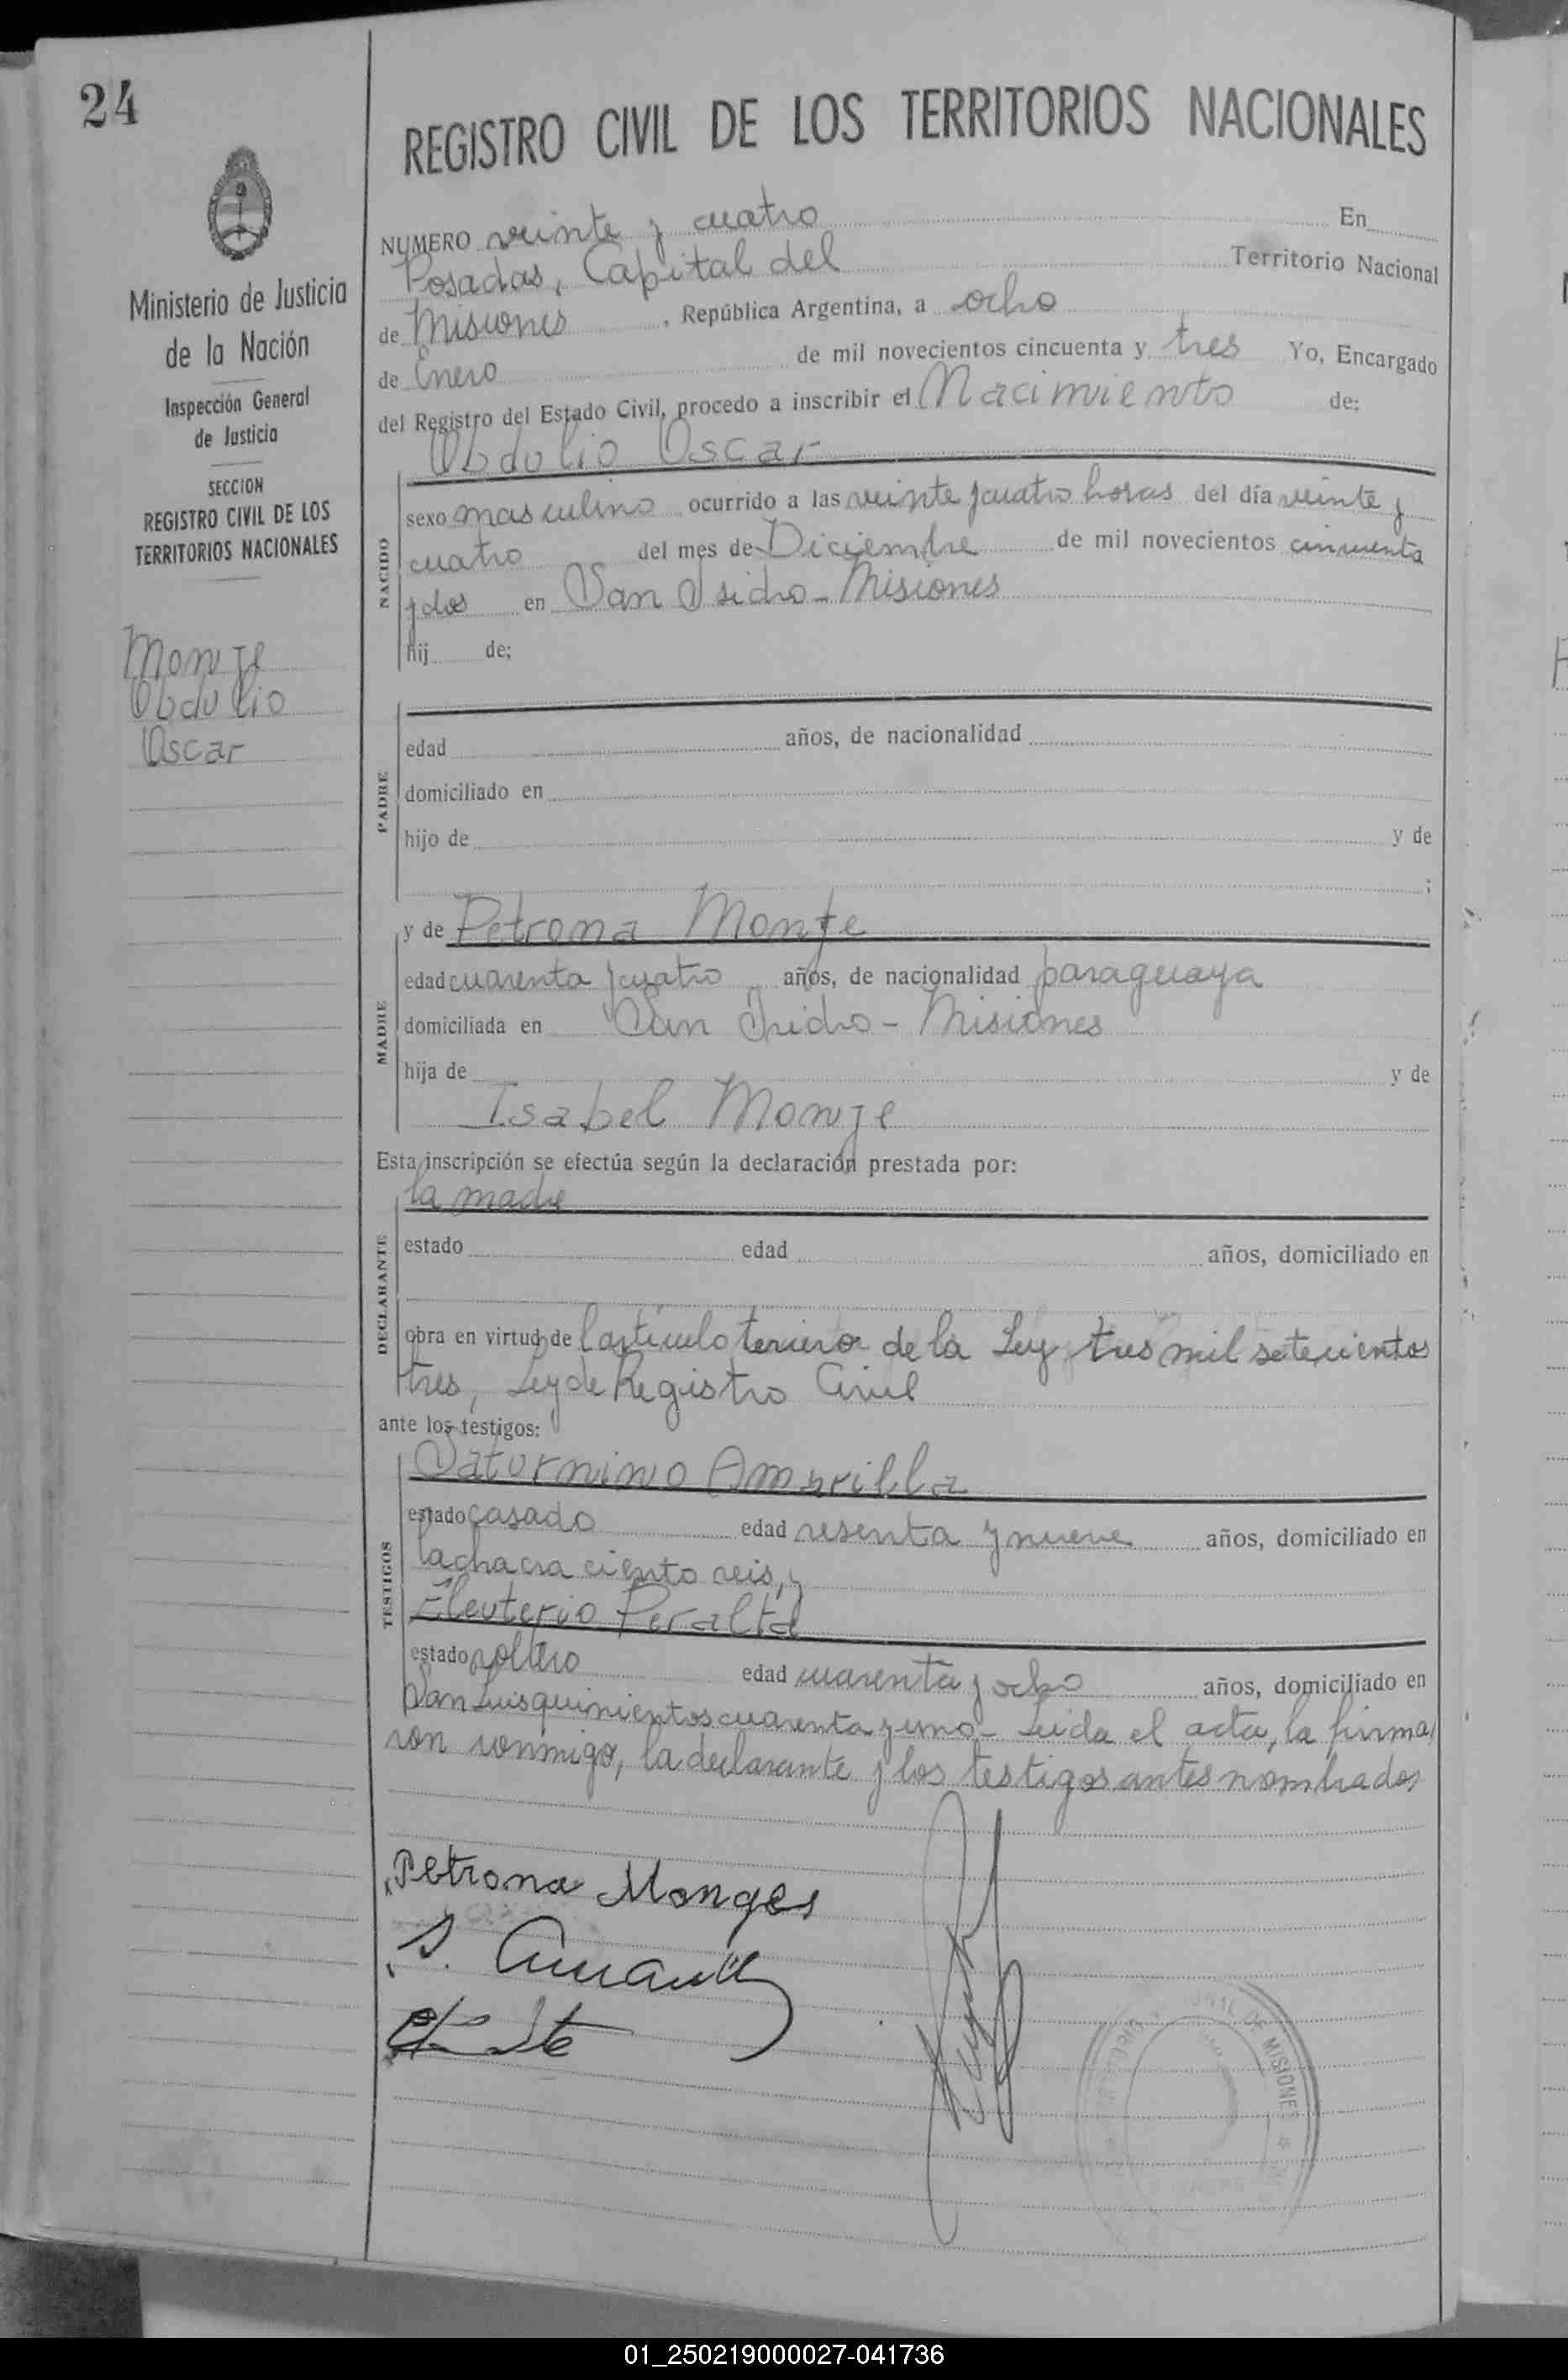 24
REGISTRO CIVIL DE LOS TERRITORIOS NACIONALES
Ministerio de Justicia
de la Nación
Inspección General
de Justicia
SECCION
REGISTRO CIVIL DE LOS
TERRITORIOS NACIONALES
Monje
Obdulio
Oscar
NUMERO veinte y cuatro En
Posadas, Capital del Territorio Nacional
de Misiones, República Argentina, a ocho
de Enero de mil novecientos cincuenta y tres Yo, Encargado
del Registro del Estado Civil, procedo a inscribir el Nacimiento de:
Obdulio Oscar
NACIDO
sexo masculino ocurrido a las veinte y cuatro horas del día veinte y
cuatro del mes de Diciembre de mil novecientos cincuenta
y dos en San Isidro - Misiones
hij de;
PADRE
edad años, de nacionalidad
domiciliado en
hijo de y de
;
MADRE
y de Petrona Monje
edad cuarenta y cuatro años, de nacionalidad paraguaya
domiciliada en San Isidro - Misiones
hija de y de
Isabel Monje
Esta inscripción se efectúa según la declaración prestada por:
la madre
DECLARANTE
estado edad años, domiciliado en
obra en virtud de l artículo tercero de la Ley tres mil setecientos
tres, Ley de Registro Civil
ante los testigos:
TESTIGOS
Saturnino Amarilla
estado casado edad sesenta y nueve años, domiciliado en
la chacra ciento seis, y
Eleuterio Peralta
estado soltero edad cuarenta y ocho años, domiciliado en
San Luis quinientos cuarenta y uno - Leida el acta, la firma
ron conmigo, la declarante y los testigos antes nombrados
Petrona Monges
S. Amarilla
DE MISIONES
01_250219000027-041736